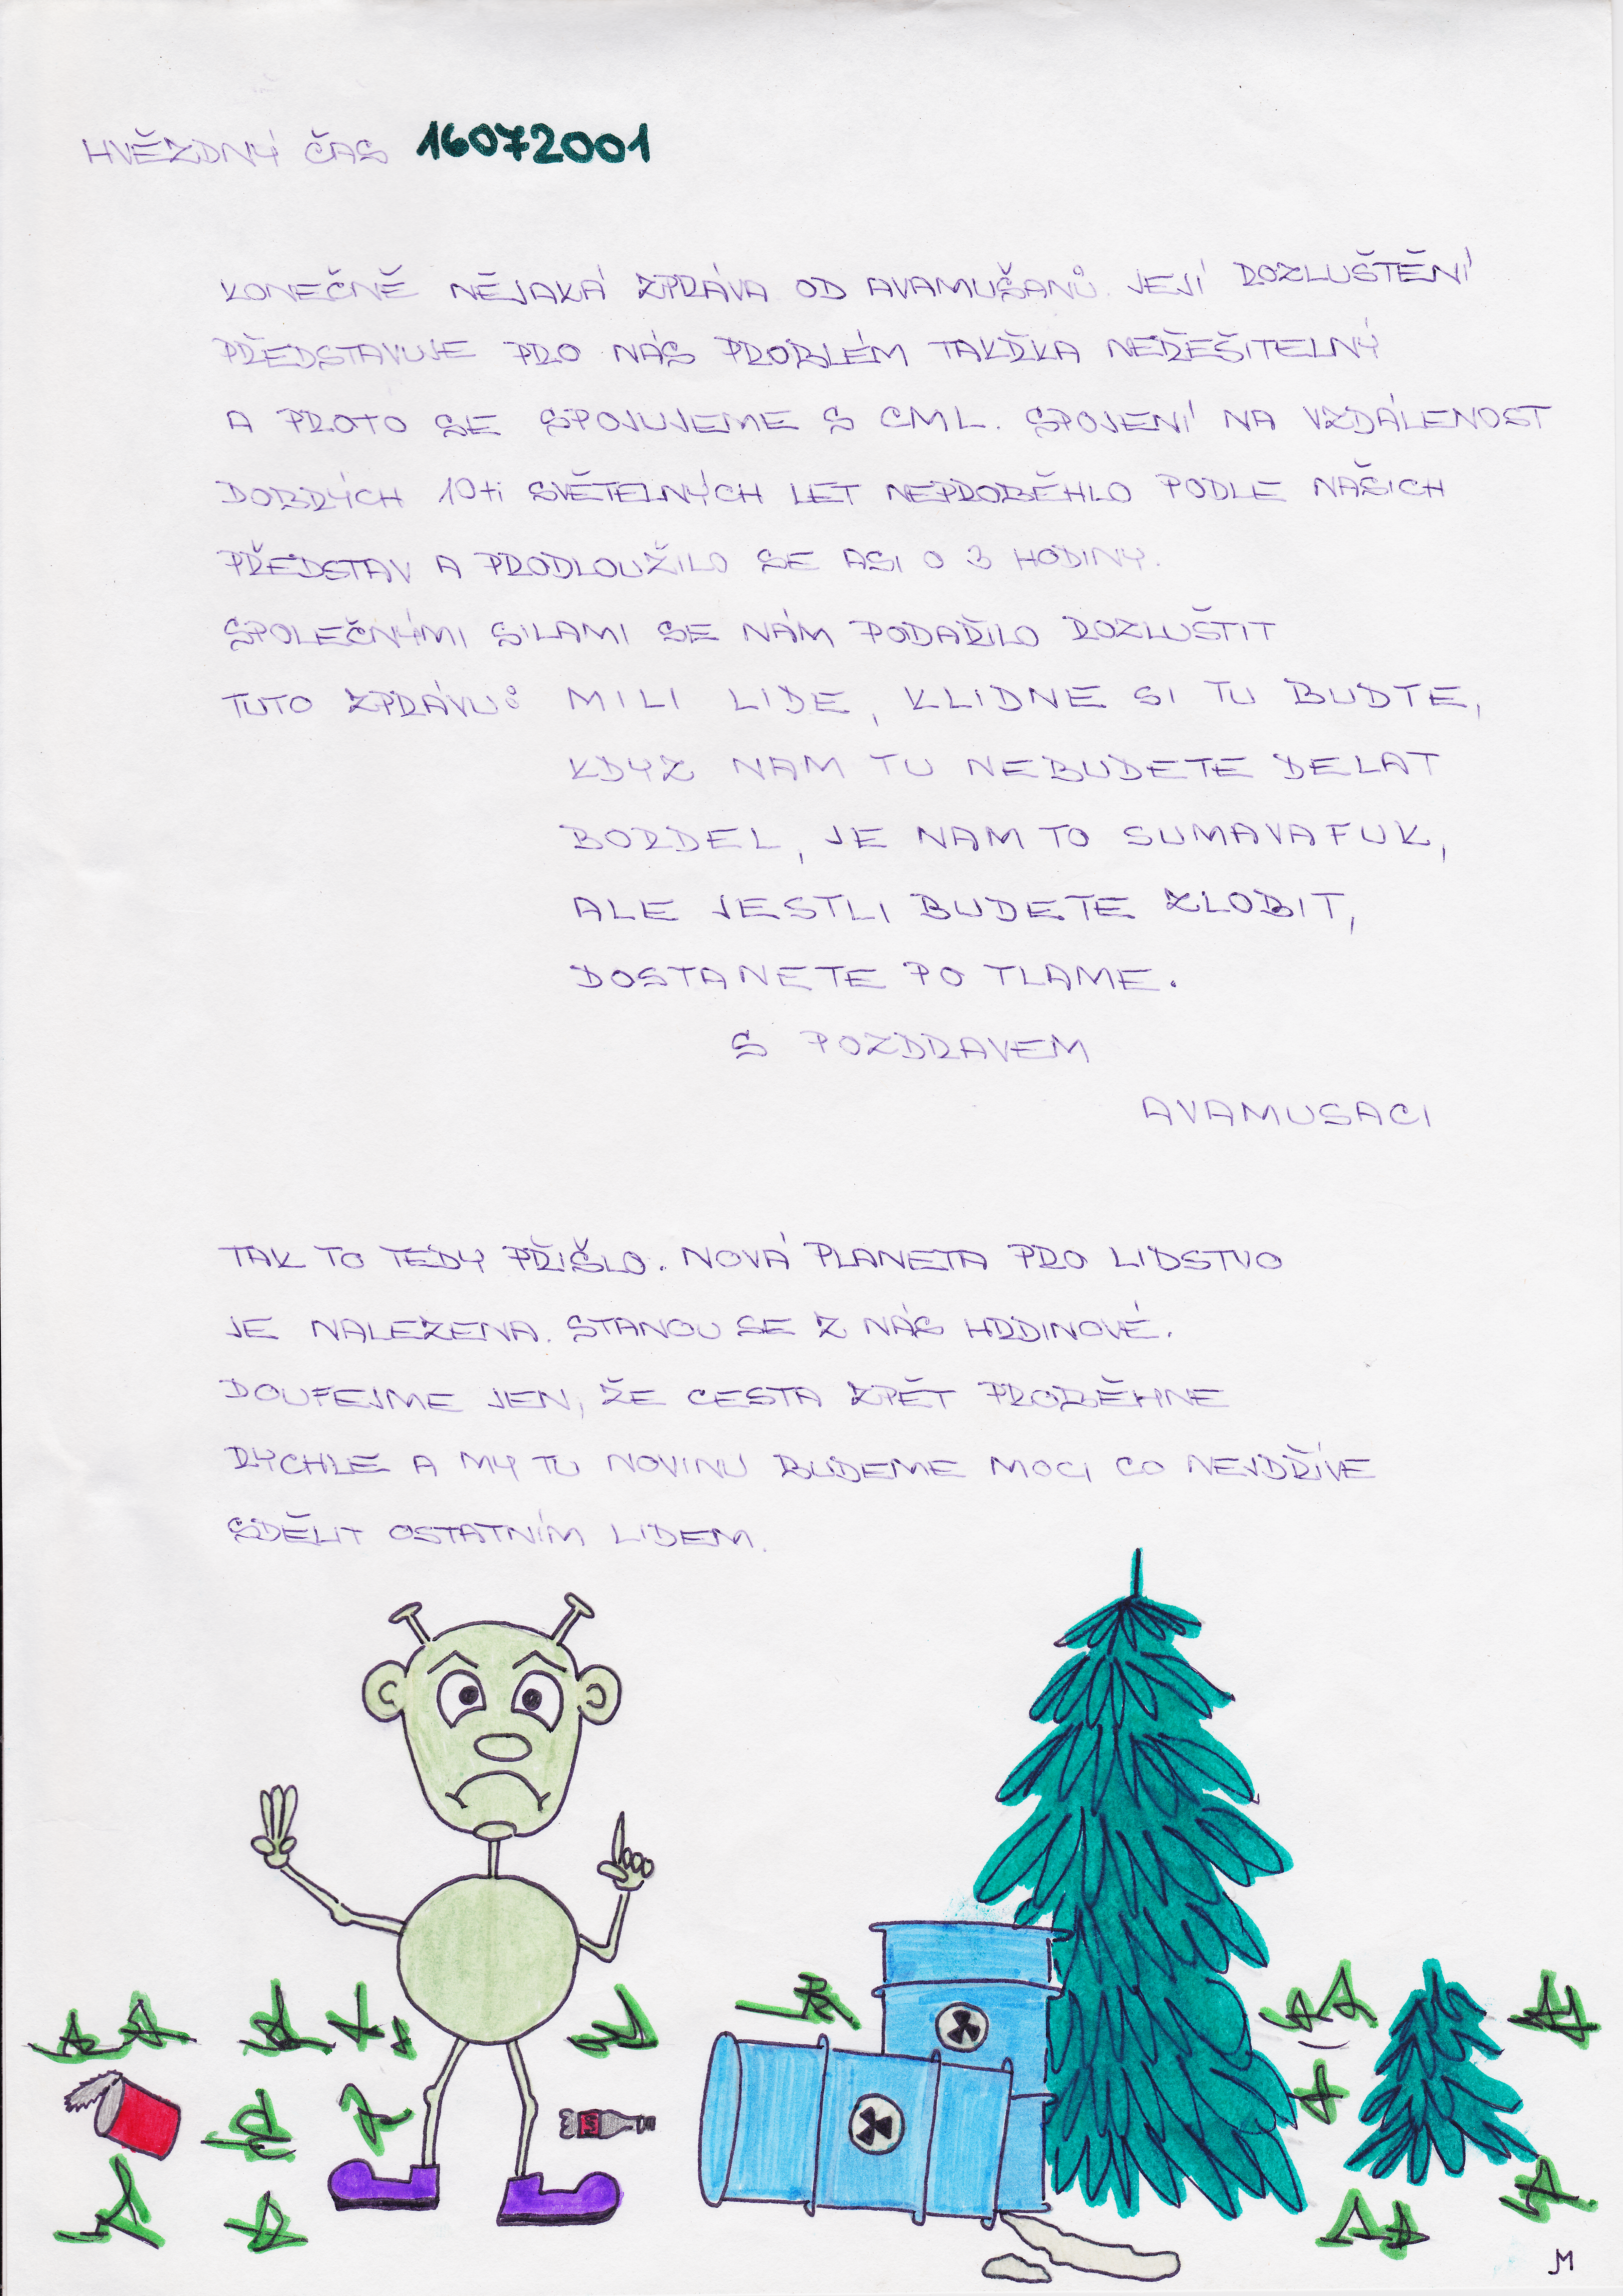 HVĚZDNÝ ČAS 16072001
KONEČNĚ NĚJAKÁ ZPRÁVA OD AVAMUŠANŮ. JEJÍ ROZLUŠTĚNÍ
PŘEDSTAVUJE PRO NÁS PROBLÉM TAKŘKA NEŘEŠITELNÝ
A PROTO SE SPOJUJEME S CML. SPOJENÍ NA VZDÁLENOST
DOBRÝCH 10ti SVĚTELNÝCH LET NEPROBĚHLO PODLE NAŠICH
PŘEDSTAV A PRODLOUŽILO SE ASI O 3 HODINY.
SPOLEČNÝMI SILAMI SE NÁM PODAŘILO ROZLUŠTIT
TUTO ZPRÁVU: MILI LIDE, KLIDNE SI TU BUDTE,
KDYZ NAM TU NEBUDETE DELAT
BORDEL, JE NAM TO SUMAVAFUK,
ALE JESTLI BUDETE ZLOBIT,
DOSTANETE PO TLAME.
S POZDRAVEM
AVAMUSACI
TAK TO TEDY PŘIŠLO. NOVÁ PLANETA PRO LIDSTVO
JE NALEZENA. STANOU SE Z NÁS HRDINOVÉ.
DOUFEJME JEN, ŽE CESTA ZPĚT PROBĚHNE
RYCHLE A MY TU NOVINU BUDEME MOCI CO NEJDŘÍVE
SDĚLIT OSTATNÍM LIDEM.
JM